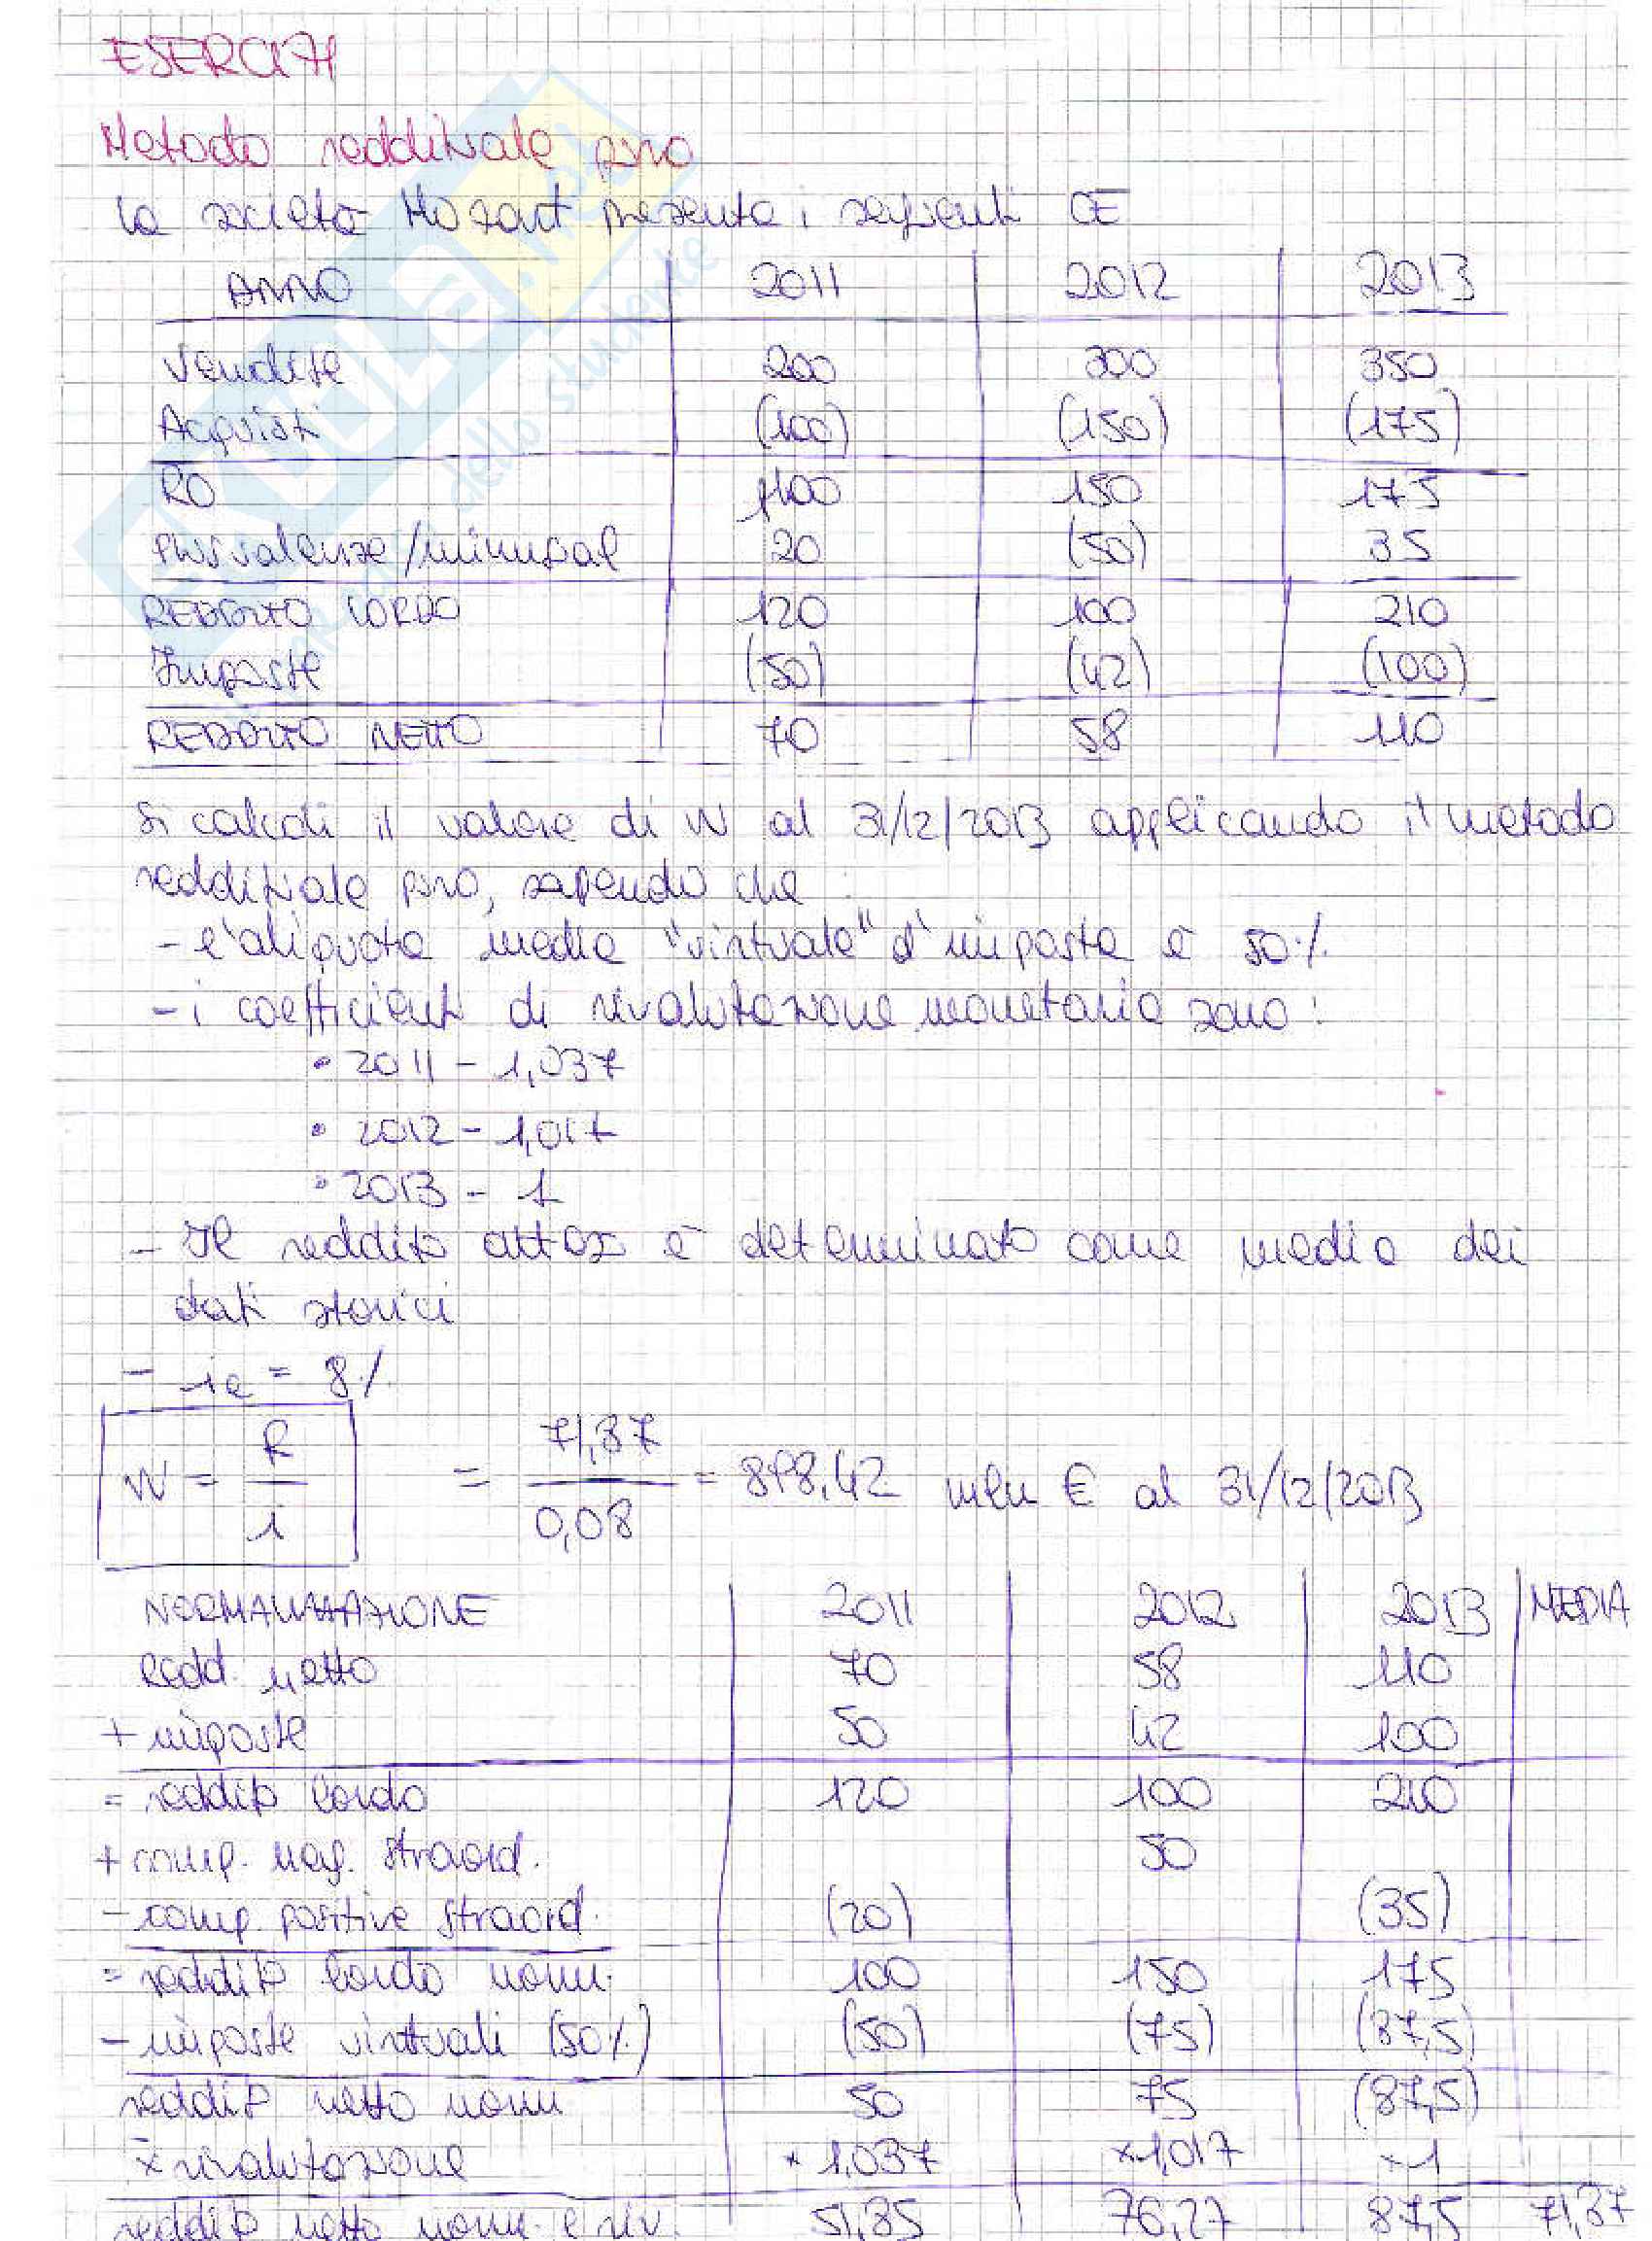 ESERCIZI
Metodo reddituale puro
la società Mozart presenta i seguenti CE
ANNO 2011 2012 2013
Vendite 200 300 350
Acquisti (100) (150) (175)
RO 100 150 175
Plusvalenze/minusval 20 (50) 35
REDDITO LORDO 120 100 210
Imposte (50) (42) (100)
REDDITO NETTO 70 58 110
Si calcoli il valore di W al 31/12/2013 applicando il metodo
reddituale puro, sapendo che :
- l'aliquota media "virtuale" d'imposta è 50%
- i coefficienti di rivalutazione monetaria sono :
• 2011 - 1,037
• 2012 - 1,017
• 2013 - 1
- Il reddito atteso è determinato come media dei
dati storici
- ie = 8%
W = R / i = 71,87 / 0,08 = 898,42 mln € al 31/12/2013
NORMALIZZAZIONE 2011 2012 2013 MEDIA
Redd. netto 70 58 110
+ imposte 50 42 100
= reddito lordo 120 100 210
+ comp. neg. straord. 50
- comp. positive straord. (20) (35)
= reddito lordo norm. 100 150 175
- imposte virtuali (50%) (50) (75) (87,5)
reddito netto norm 50 75 (87,5)
x rivalutazione x 1,037 x 1,017 x 1
reddito netto norm. e riv. 51,85 76,27 87,5 71,87